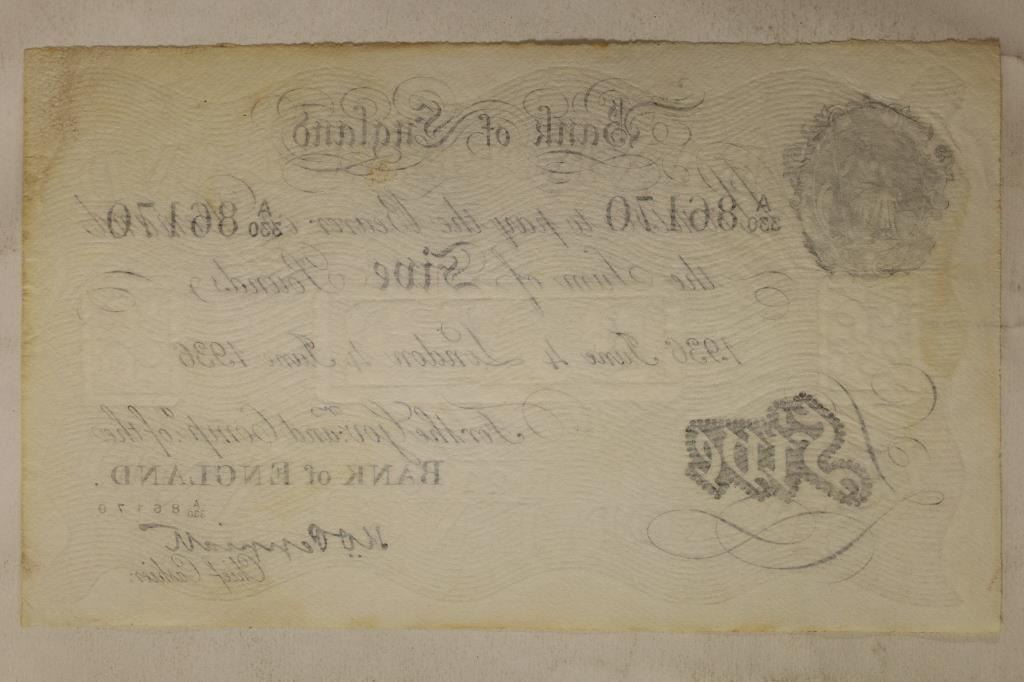 Bank of England
A/330 86170 to pay the Bearer A/330 86170
the Sum of Five Pounds
1936 June 4 London 4 June 1936
For the Gov.r and Comp.a of the
BANK of ENGLAND.
Five
A/330 86170
K.O. Peppiatt
Chief Cashier.